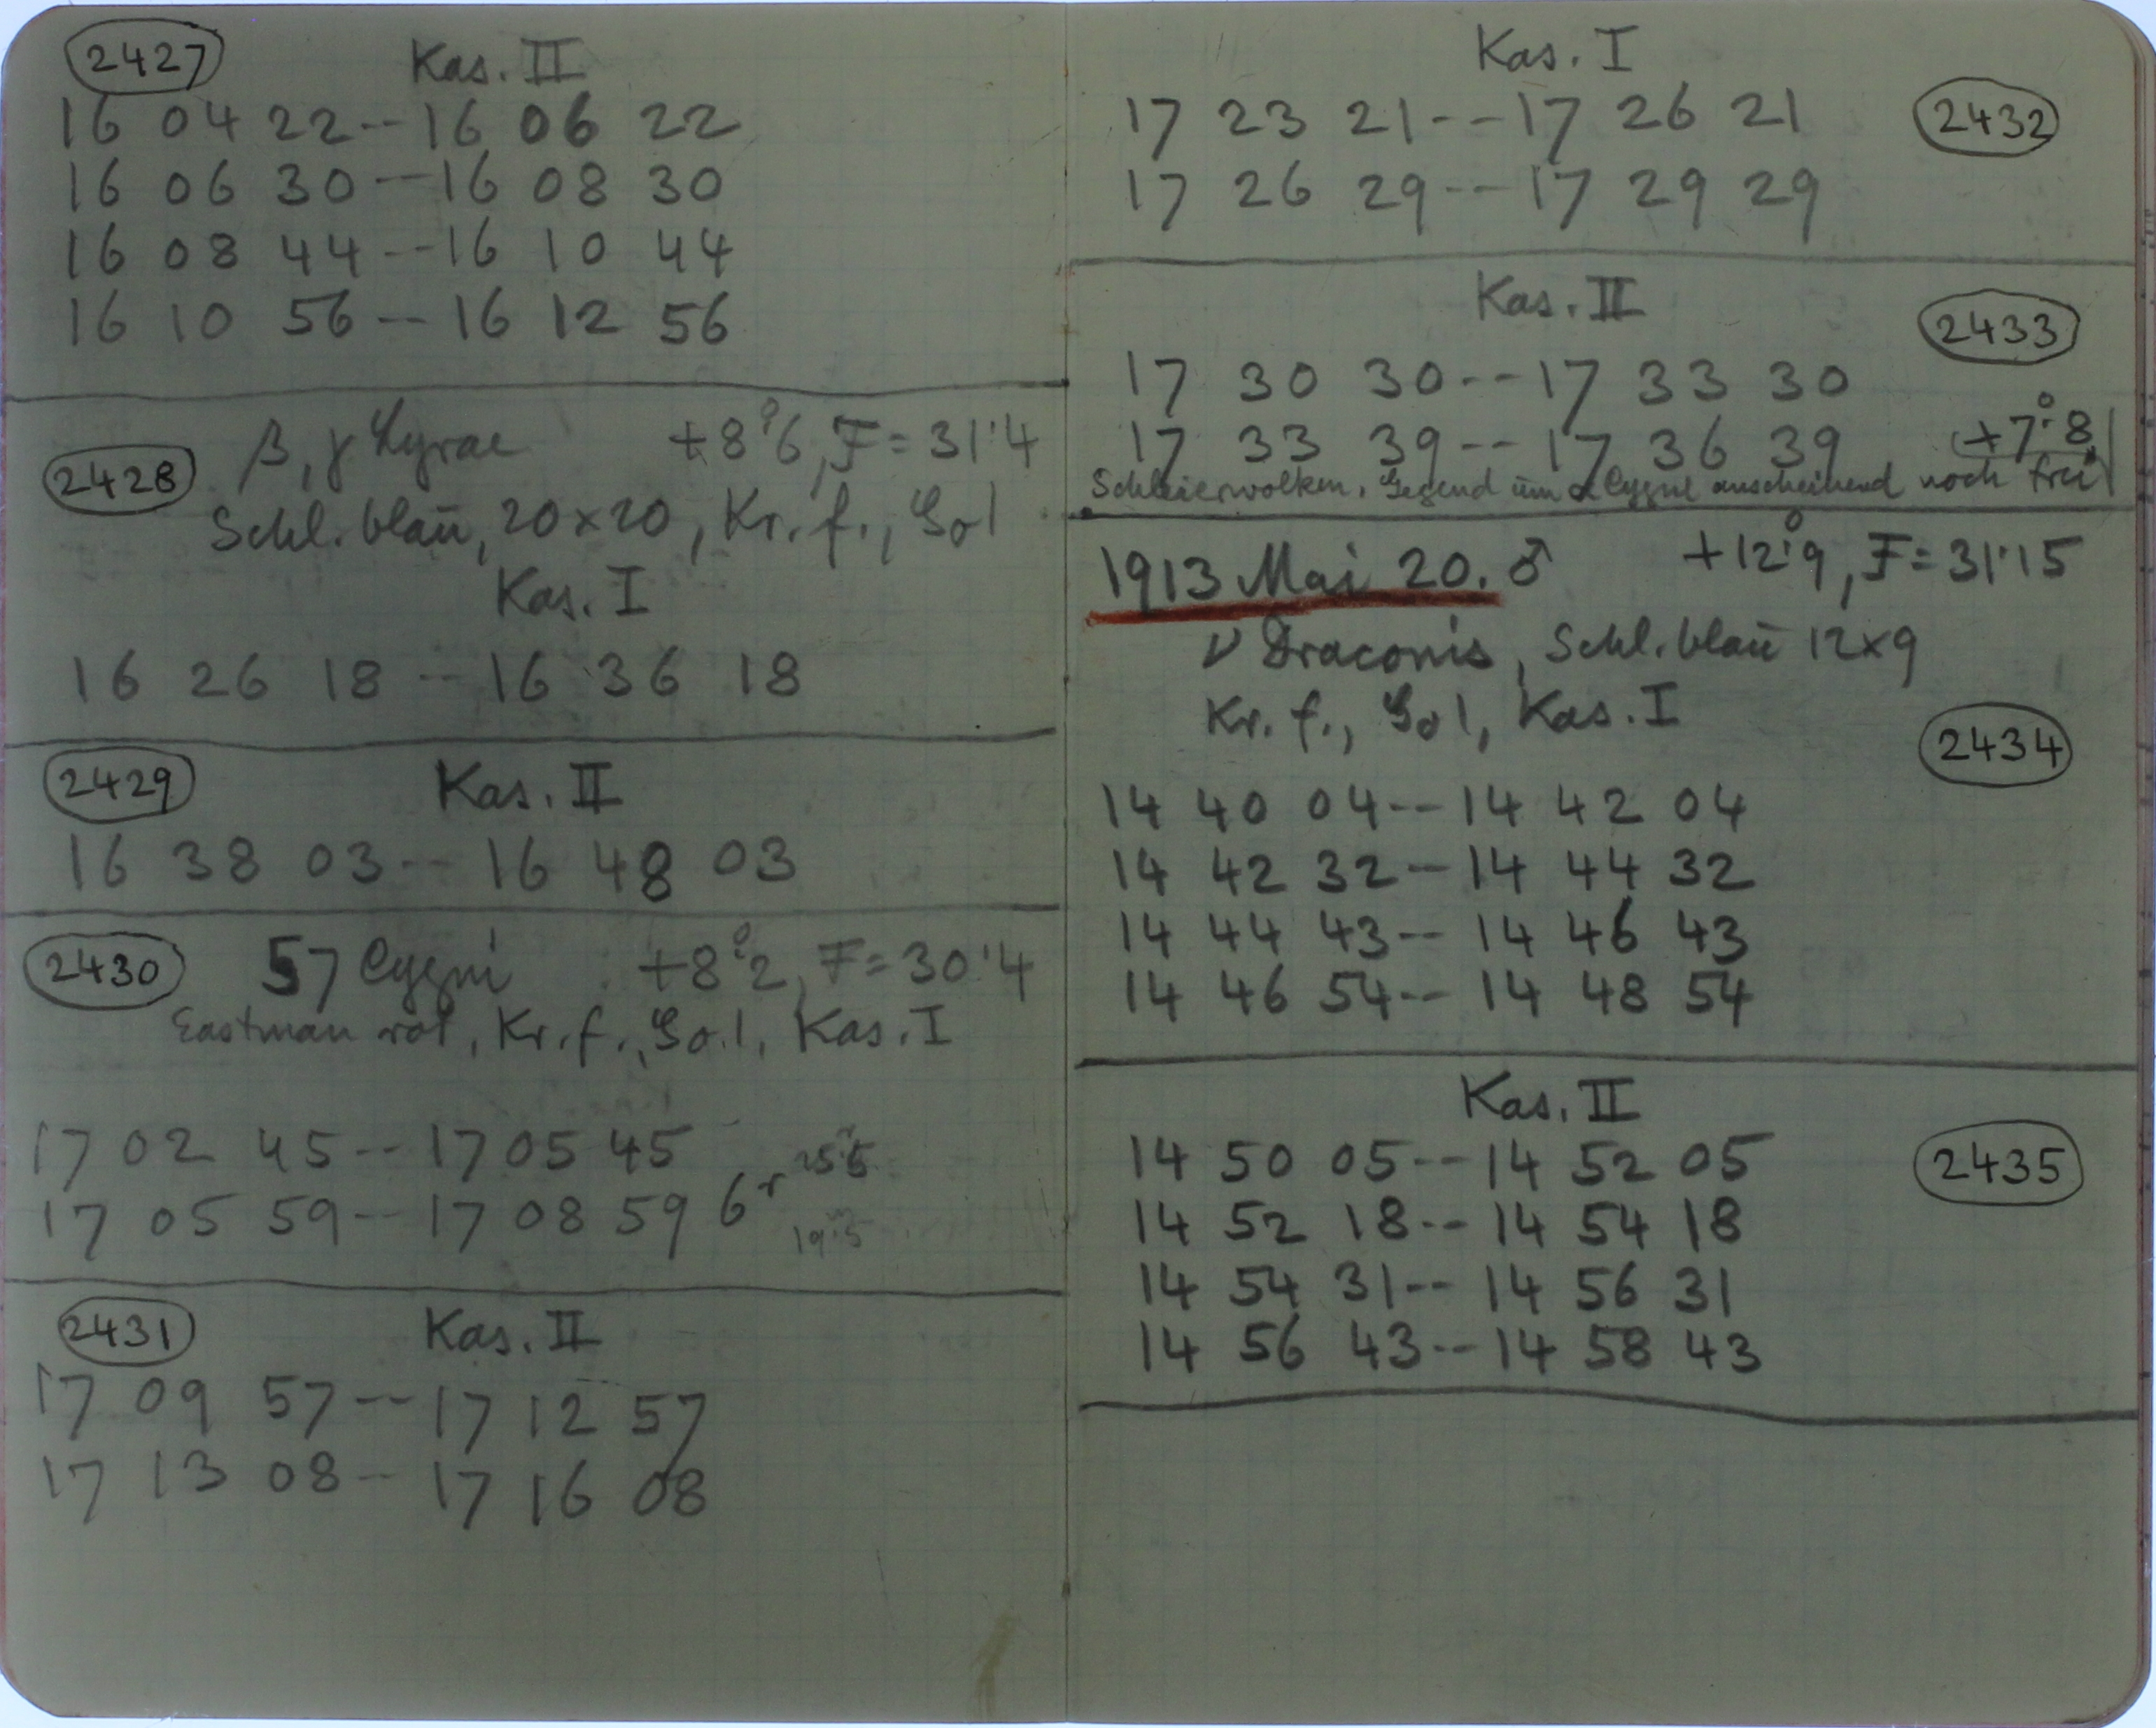 2427 Kas. II
16 04 22--16 06 22
16 06 30--16 08 30
16 08 44--16 10 44
16 10 56--16 12 56
2428 β, γ Lyrae +8°.6, F=31.4
Schl. blau, 20×20, Kr. f., Gol
Kas. I
16 26 18--16 36 18
2429 Kas. II
16 38 03--16 48 03
2430 57 Cygni +8°.2, F=30.4
Eastman rot, Kr. f., Go.l, Kas. I
17 02 45--17 05 45
17 05 59--17 08 59 6r
2431 Kas. II
17 09 57--17 12 57
17 13 08--17 16 08
Kas. I
17 23 21--17 26 21 2432
17 26 29--17 29 29
Kas. II
2433
17 30 30--17 33 30
17 33 39--17 36 39 +7°.8
Schleierwolken, Gegend um α Cygni anscheinend noch frei
1913 Mai 20. ♂ +12°.9, F=31.15
ν Draconis, Schl. blau 12×9
Kr. f., Gol, Kas. I
2434
14 40 04--14 42 04
14 42 32--14 44 32
14 44 43--14 46 43
14 46 54--14 48 54
Kas. II
14 50 05--14 52 05 2435
14 52 18--14 54 18
14 54 31--14 56 31
14 56 43--14 58 43